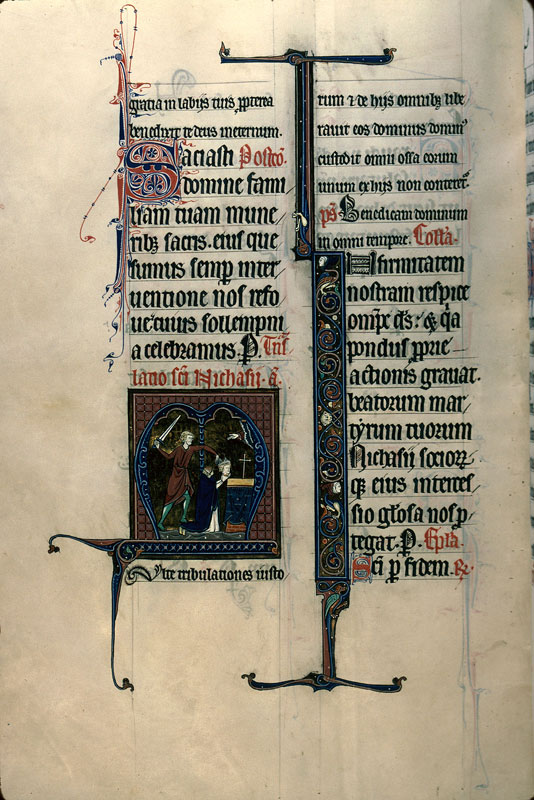 gratia in labijs tuis pp̄terea
benedixit te deus in eternum.
Saciasti Postcō.
domine fami
liam tuam mune
ribꝫ sacris. eius que
sumus semp̄ inter
uentione nos refo
ue cuius sollempni
a celebramus. P. Trās
latio sc̄i Nichasii. a.
Multe tribulationes iusto
rum ⁊ de hijs omnibꝫ libe
rauit eos dominus dominꝰ
custodit omni ossa eorum
unum ex hijs non conteretᷣ
ps̄ Benedicam dominum
in omni tempore. Collā.
Infirmitatem
nostram respice
om̄ps d̄s: ⁊ q̄a
pondus pp̄rie
actionis grauat.
beatorum mar
tyrum tuorum
Nichasii socioꝝ
qꝫ eius interces
sio gl̄osa nos p̄
tegat. P. Ep̄la.
Sc̄i p fidem. R̷.